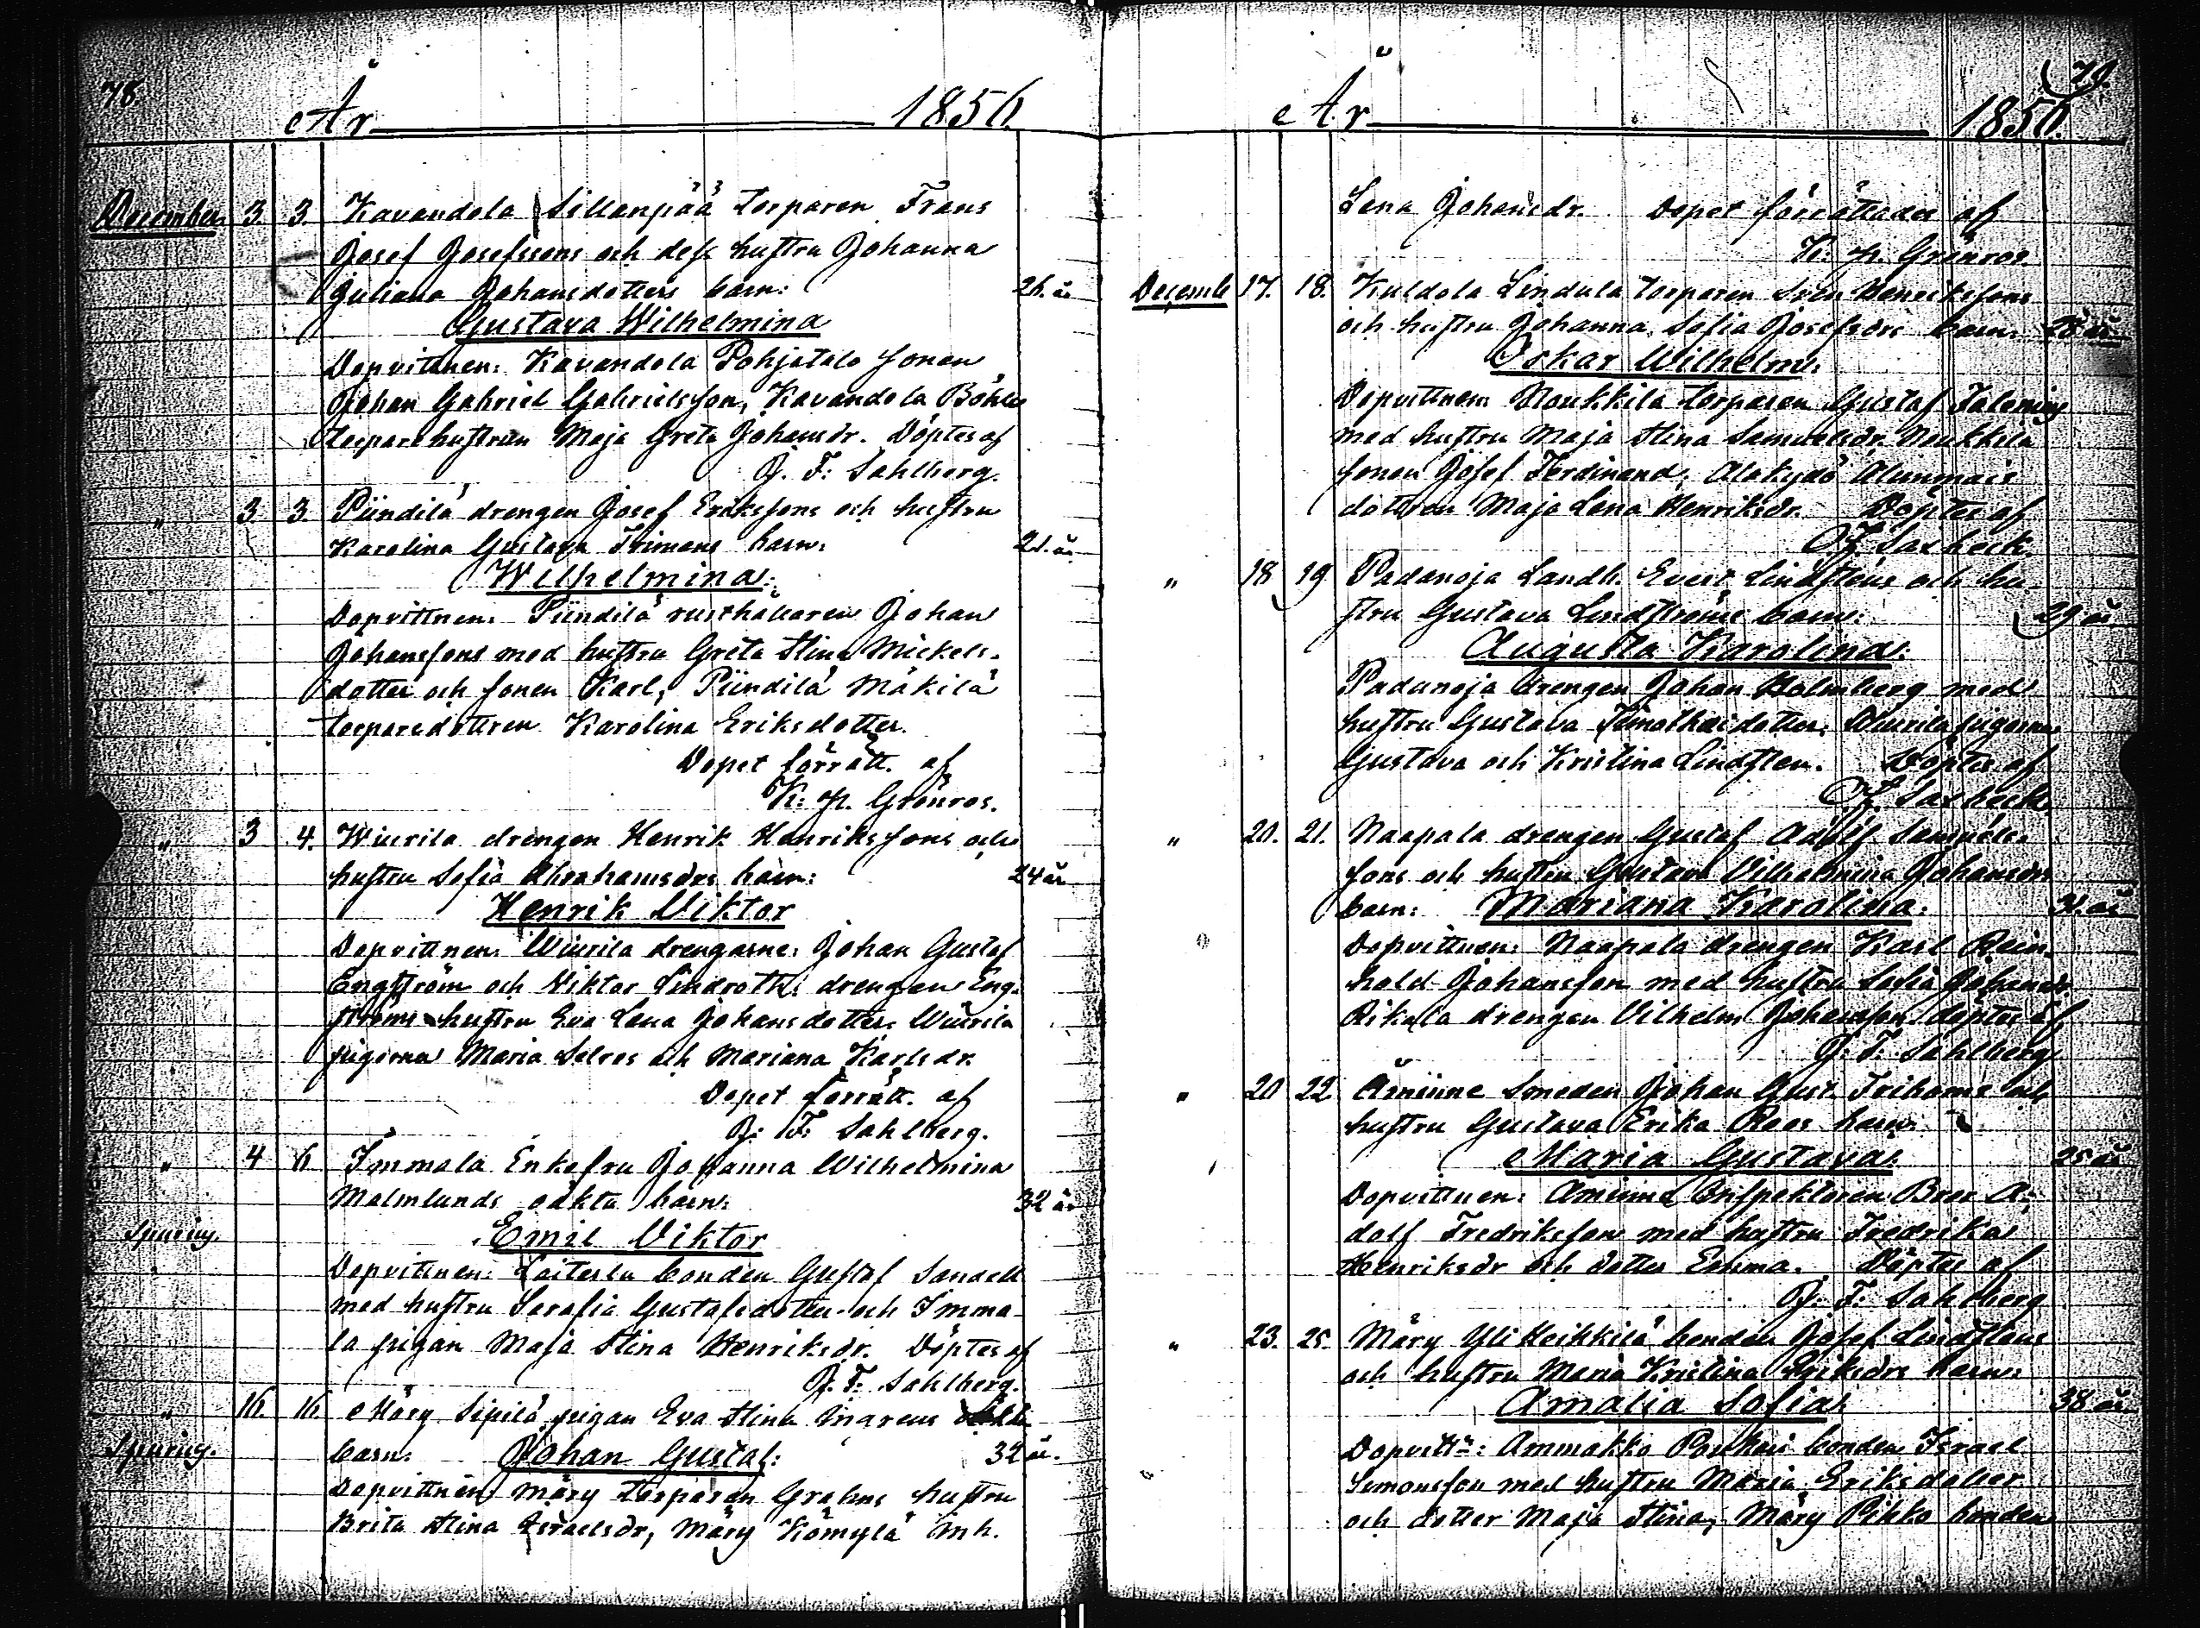 78.
År 1856.
December. 3. 3. Kavandola Sillanpää torparen Frans
Josef Josefssons och dess hustru Johanna
Juliana Johansdotters barn: 26. år
Gustava Wilhelmina
Dopvittnen: Kavandola Pohjatalo sonen
Johan Gabriel Gabrielsson, Kavandola Böhle
torparehustrun Maja Greta Johansdr. Döptes af
J. F: Sahlberg.
" 3 3 Piindilä drengen Josef Erikssons och hustru
Karolina Gustava Frimans barn: 21. år
Wilhelmina:
Dopvittnen: Piindilä rusthållaren Johan
Johansson med hustru Greta Stina Mickels-
dotter och sonen Karl, Piindilä Mäkilä
torparedottren Karolina Eriksdotter.
Dopet förrätt. af
K: p. Grönros.
" 3 4. Wiurila drengen Henrik Henrikssons och
hustru Sofia Abrahamsdrs barn: 24 år
Henrik Viktor
Dopvittnen: Wiurila drengarne: Johan Gustaf
Engström och Viktor Lindroth: drengen Eng-
ströms hustru Eva Lena Johansdotter, Wiurila
pigorna Maria Selros och Mariana Karlsdr.
Dopet förrätt. af
J: F: Sahlberg.
" 4 6 Immala Enkefru Johanna Wilhelmina
Malmlunds oäkta barn: 32 år
Spuring. Emil Viktor
Dopvittnen: Laiterla bonden Gustaf Sandell
med hustru Serafia Gustafsdotter och Imma-
la pigan Maja Stina Henriksdr. Döptes af
J. F: Sahlberg.
" 16. 16. Märy Sipilä pigan Eva Stina Ingrens oäkta
Spuring. barn: Johan Gustaf: 32 år.
Dopvittnen: Märy torparen Grahns hustru
Brita Stina Israelsdr, Märy Kömylä Inh.
79.
År 1856.
Lena Johansdr. Dopet förrättades af
K: p. Grönros.
Decemb 17. 18. Kuldola Lindula torparen Sven Henrikssons
och hustru Johanna Sofia Josefsdrs barn: 28 år
Oskar Wilhelm:
Dopvittnen: Noukkila torparen Gustaf
med hustru Maja Stina Samuelsdr. Noukkila
sonen Josef Ferdinand, Alakydö
dottren Maja Lena Henriksdr. Döptes af
" 18 19. Padanoja Landb. Evert Lindsténs och hu-
stru Gustava Lindströms barn: 29 år
Augusta Karolina:
Padanoja drengen Johan Holmberg med
hustru Gustava Timotheidotter, Wiurila pigorna
Gustava och Kristina Lindsten. Döptes af
" 20. 21. Naapala drengen Gustaf Adolf Samuels-
sons och hustru Gustava Vilhelmina Johansdrs
barn: Mariana Karolina: 31. år
Dopvittnen: Naapala drengen Karl Rein-
hold Johansson med hustru Sofia Johansdr
Rikala drengen Vilhelm Johansson. döptes af
J. F: Sahlberg
" 20 22. Åminne Smeden Johan Gust. Frihoms och
hustru Gustava Erika Roos barn:
Maria Gustava: 25 år
Dopvittnen: Åminne Inspektoren Bror A-
dolf Fredriksson med hustru Fredrika
Henriksdr och dotter Emma. Döptes af
J: F: Sahlberg
" 23. 25. Märy Yli Heikkilä bonden Josef Lindsténs
och hustru Maria Kristina Eriksdrs barn:
Amalia Sofia: 38 år
Dopvittn: Ammakko Paukari bonden Israel
Simonsson med hustru Maria Eriksdotter
och dotter Maja Stina, Märy Pihko bonden